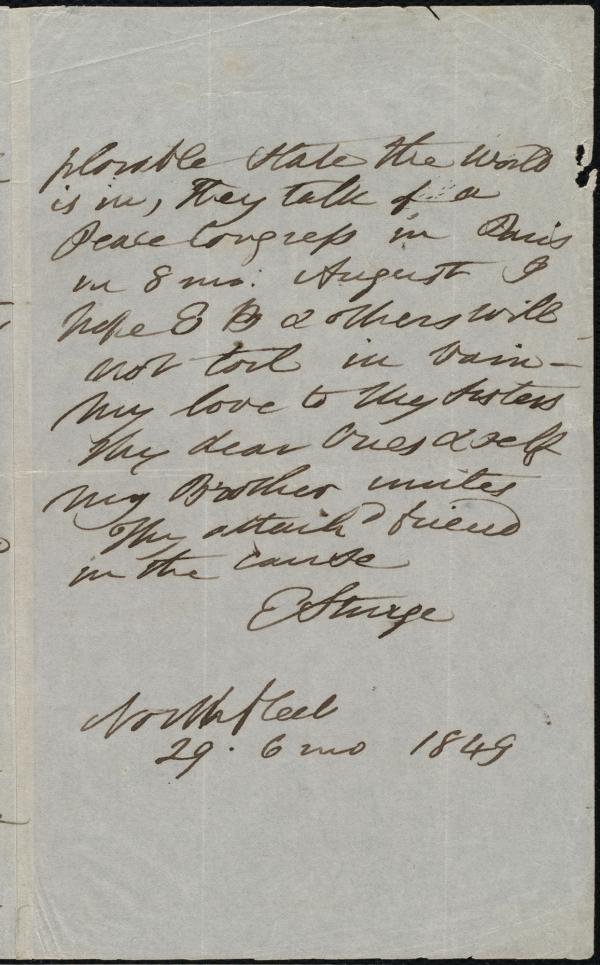 plorable state the World
is in, They talk of a
Peace Congress in Paris
in 8 mo: August I
hope E B & others will
not toil in vain –
My love to thy Sisters
thy dear Ones & self
my Brother unites
Thy attach'd friend
in the cause
E Sturge
Northfleet
29. 6 mo 1849